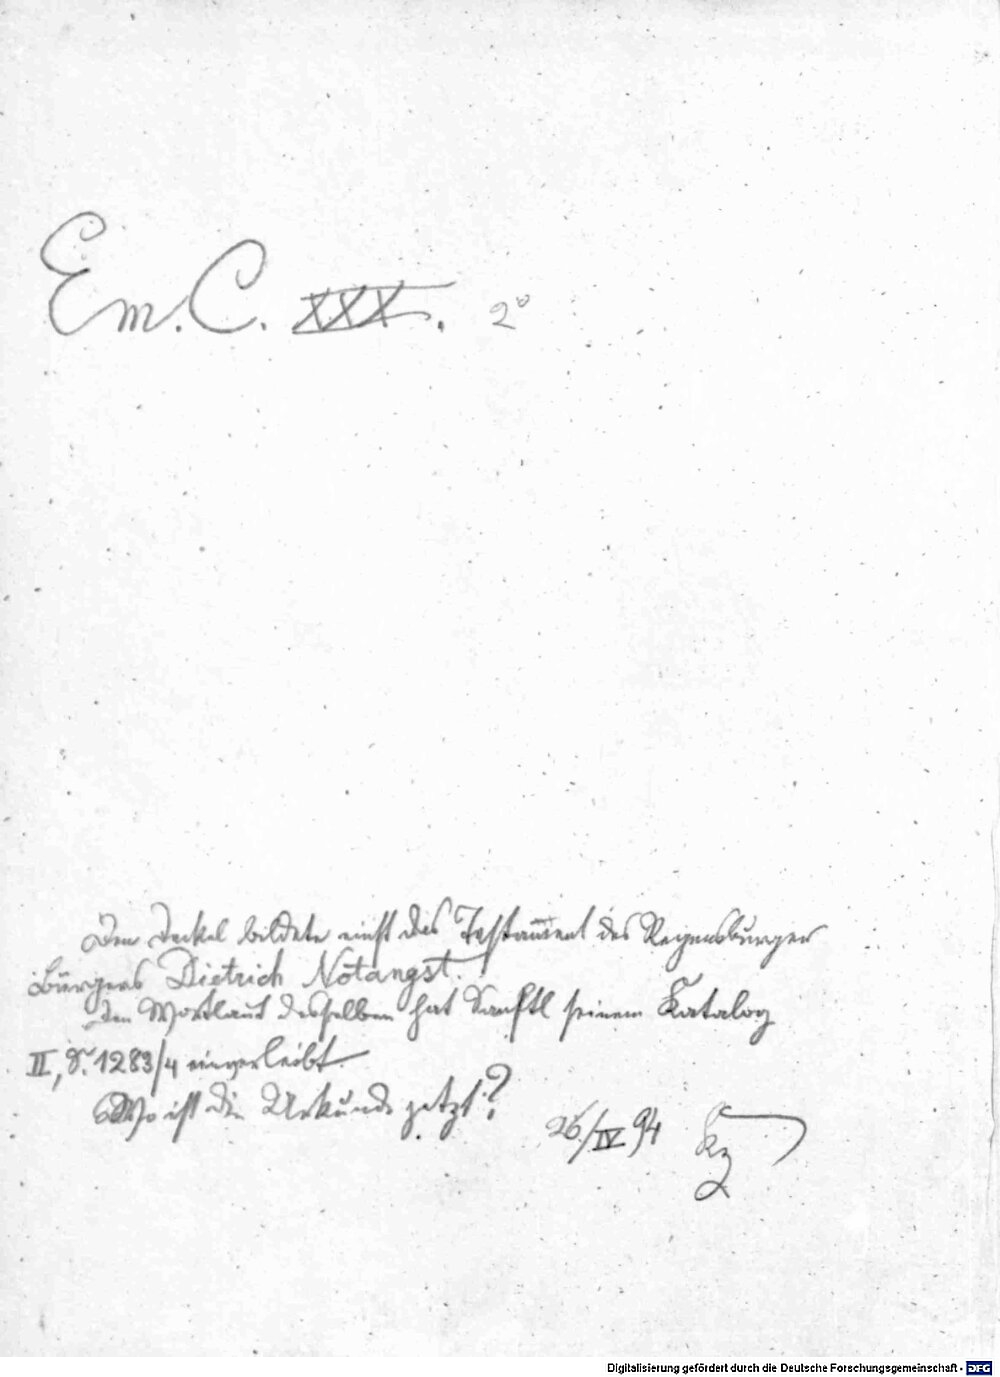 Em. C. XXX. 2°
Den Deckel bildete einst das Testament des Regensburger
Bürgers Dietrich Notangst.
Den Wortlaut desselben hat Sanftl seinem Katalog
II, S. 1283/4 eingerleibt.
Wo ist die Urkunde jetzt?
26/IV 94 Kz
Digitalisierung gefördert durch die Deutsche Forschungsgemeinschaft - DFG